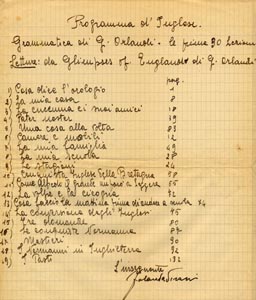 Programma d'Inglese.
Grammatica di G. Orlandi - le prime 30 lezioni
Letture: da Glimpses of England di G. Orlandi
pag.
1) Cosa dice l'orologio 1
2) La mia casa 8
3) La cucina e i suoi amici 18
4) Pater noster 39
5) Una cosa alla volta 83
6) Camere e mobili 12
7) La mia famiglia 49
8) La mia scuola 28
9) Le stagioni 24
10) Conquista Inglese della Bretagna 58
11) Come Alfredo il grande imparò a leggere 65
12) La volpe e la cicogna 92
13) Cosa faccio la mattina prima di andare a scuola 34
14) La conversione degli Inglesi 45
15) Tre domande 80
16) La conquista Normanna 87
17) Mestieri 90
18) I Normanni in Inghilterra 92
19) I Pasti 132
L'insegnante